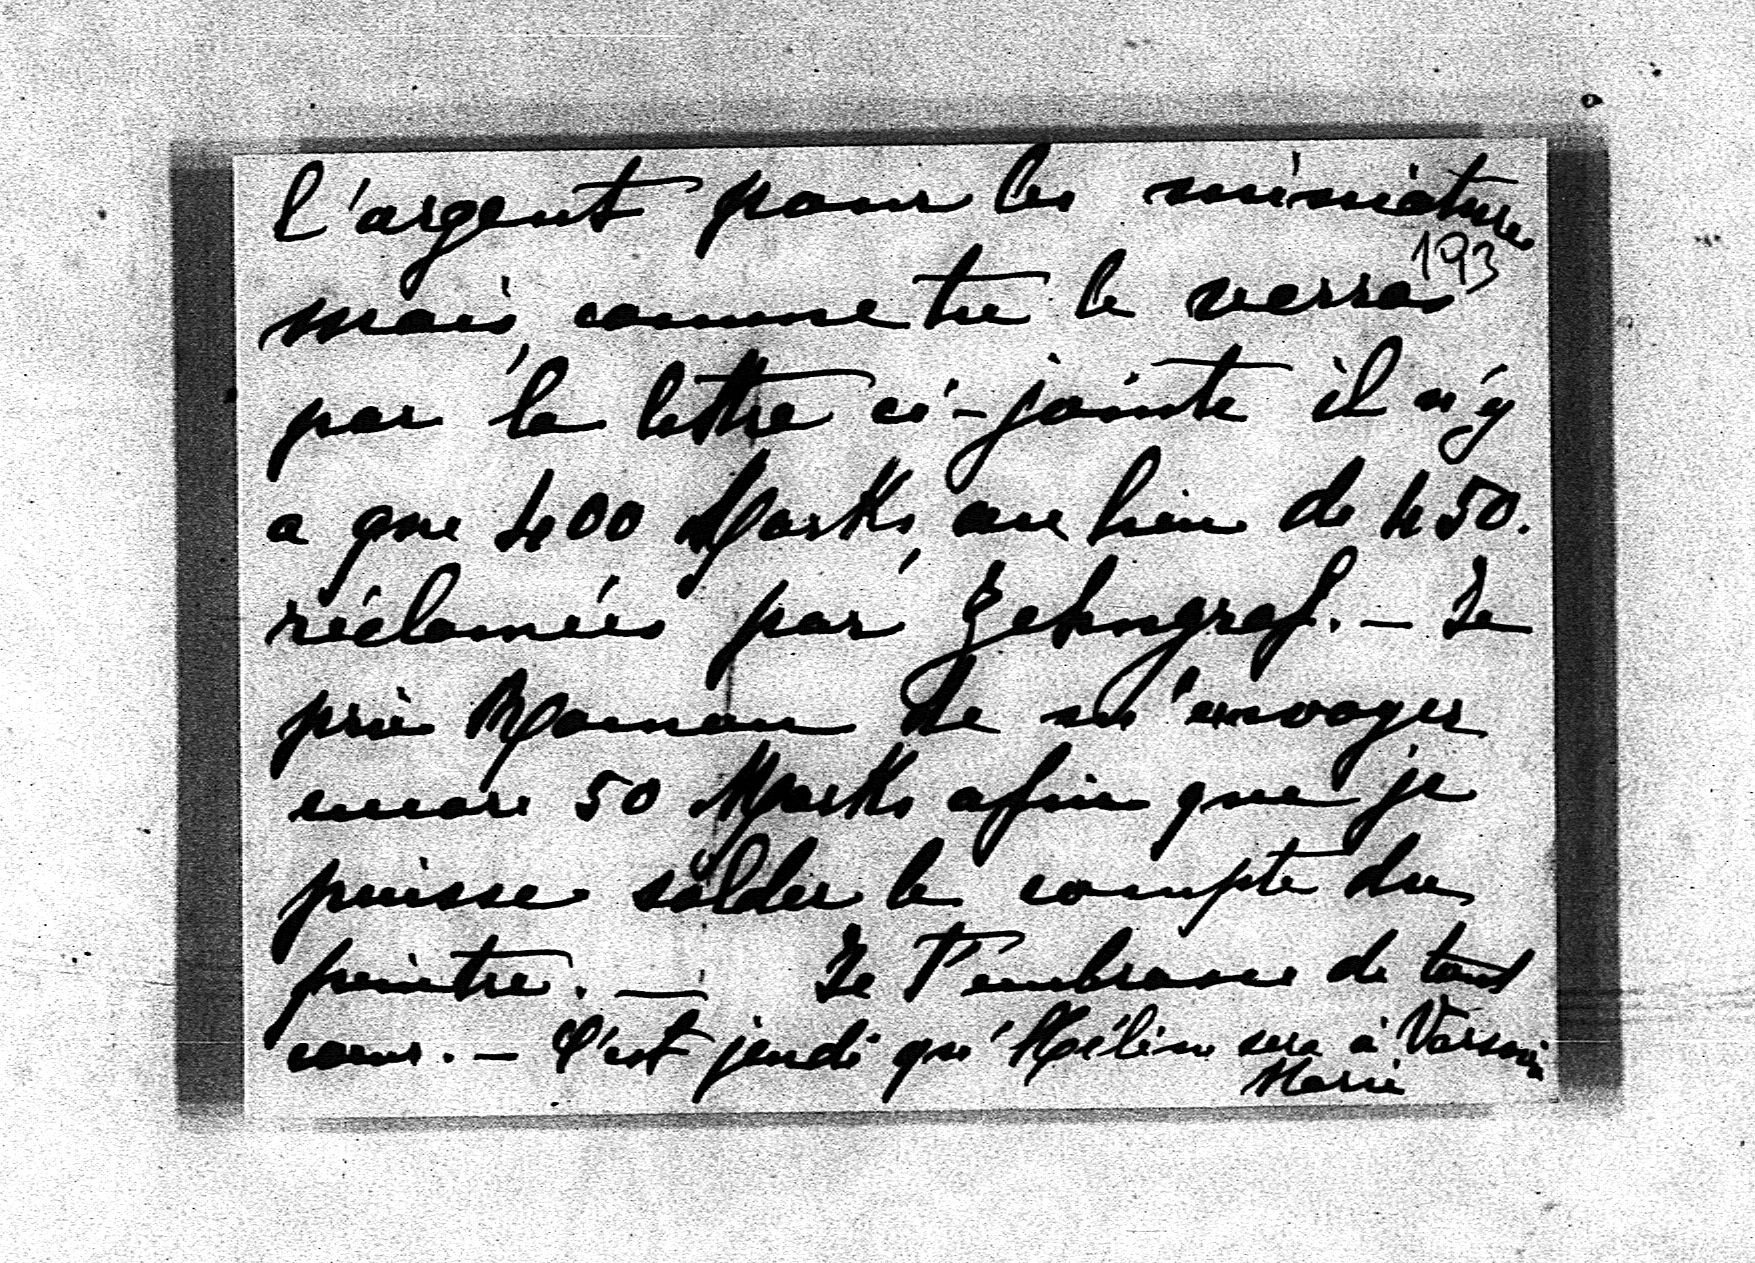 l'argent pour les miniatures
193
mais comme tu le verras
par la lettre ci-jointe il n'y
a que 400 Marks au lieu de 450.
réclamées par Zehngraf. — Je
prie Maman de m'envoyer
encore 50 Marks afin que je
puisse solder le compte du
peintre. — Je t'embrasse de tout
cœur. — C'est jeudi qu'Hélène sera à Varsovie
Marie